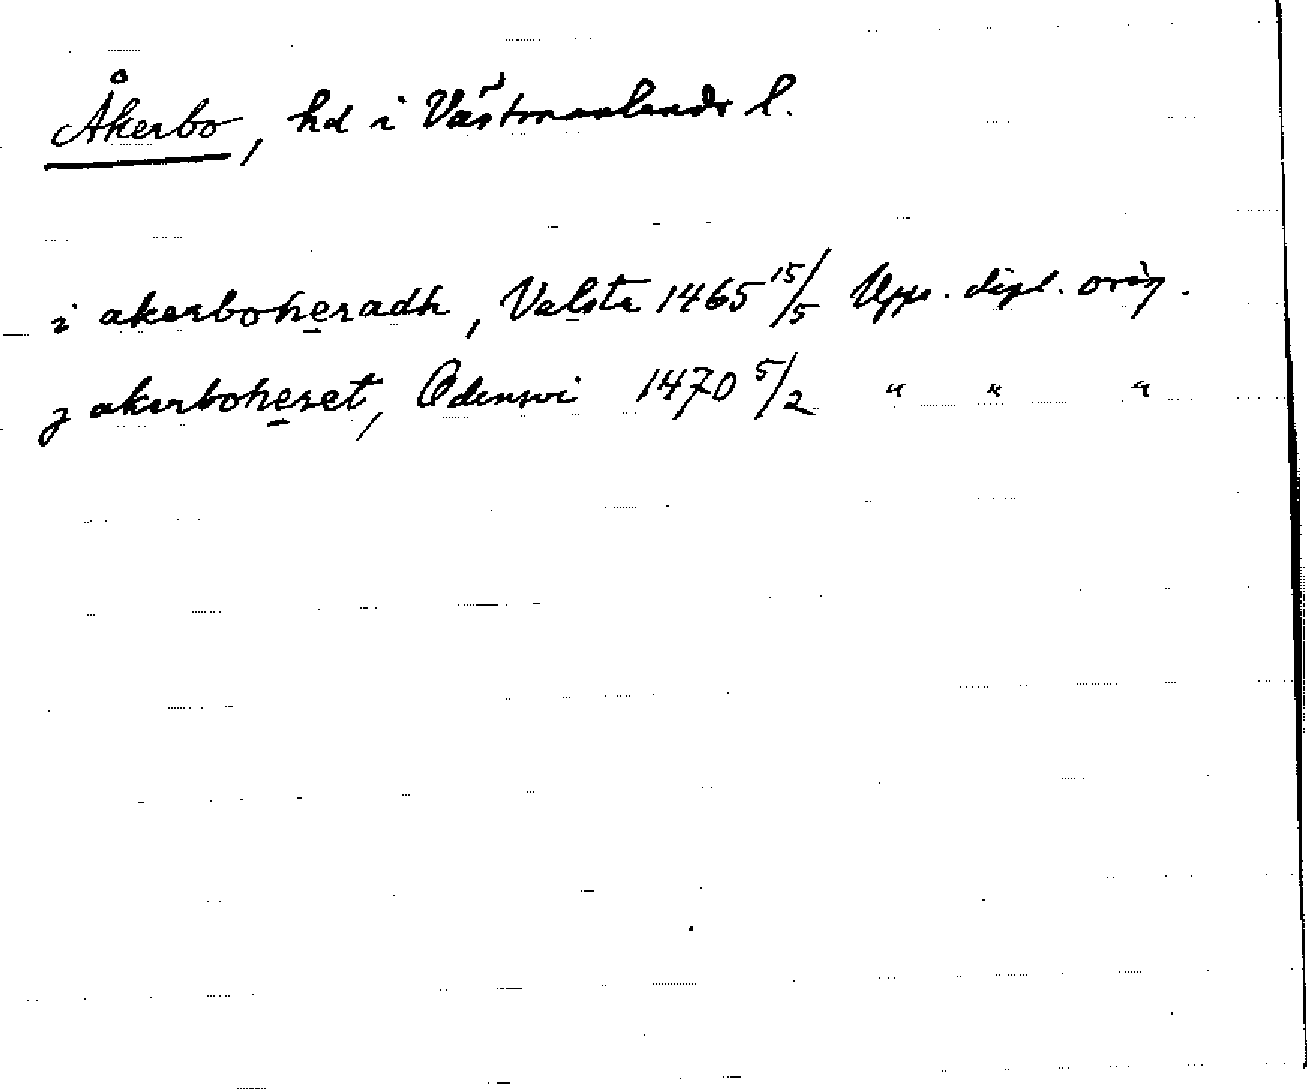 Åkerbo, hd i Västmanlands l.
i akerboheradh, Valsta 1465 15/5 Upps. dipl. orig.
j akerboheret, Odensvi 1470 5/2 " " "